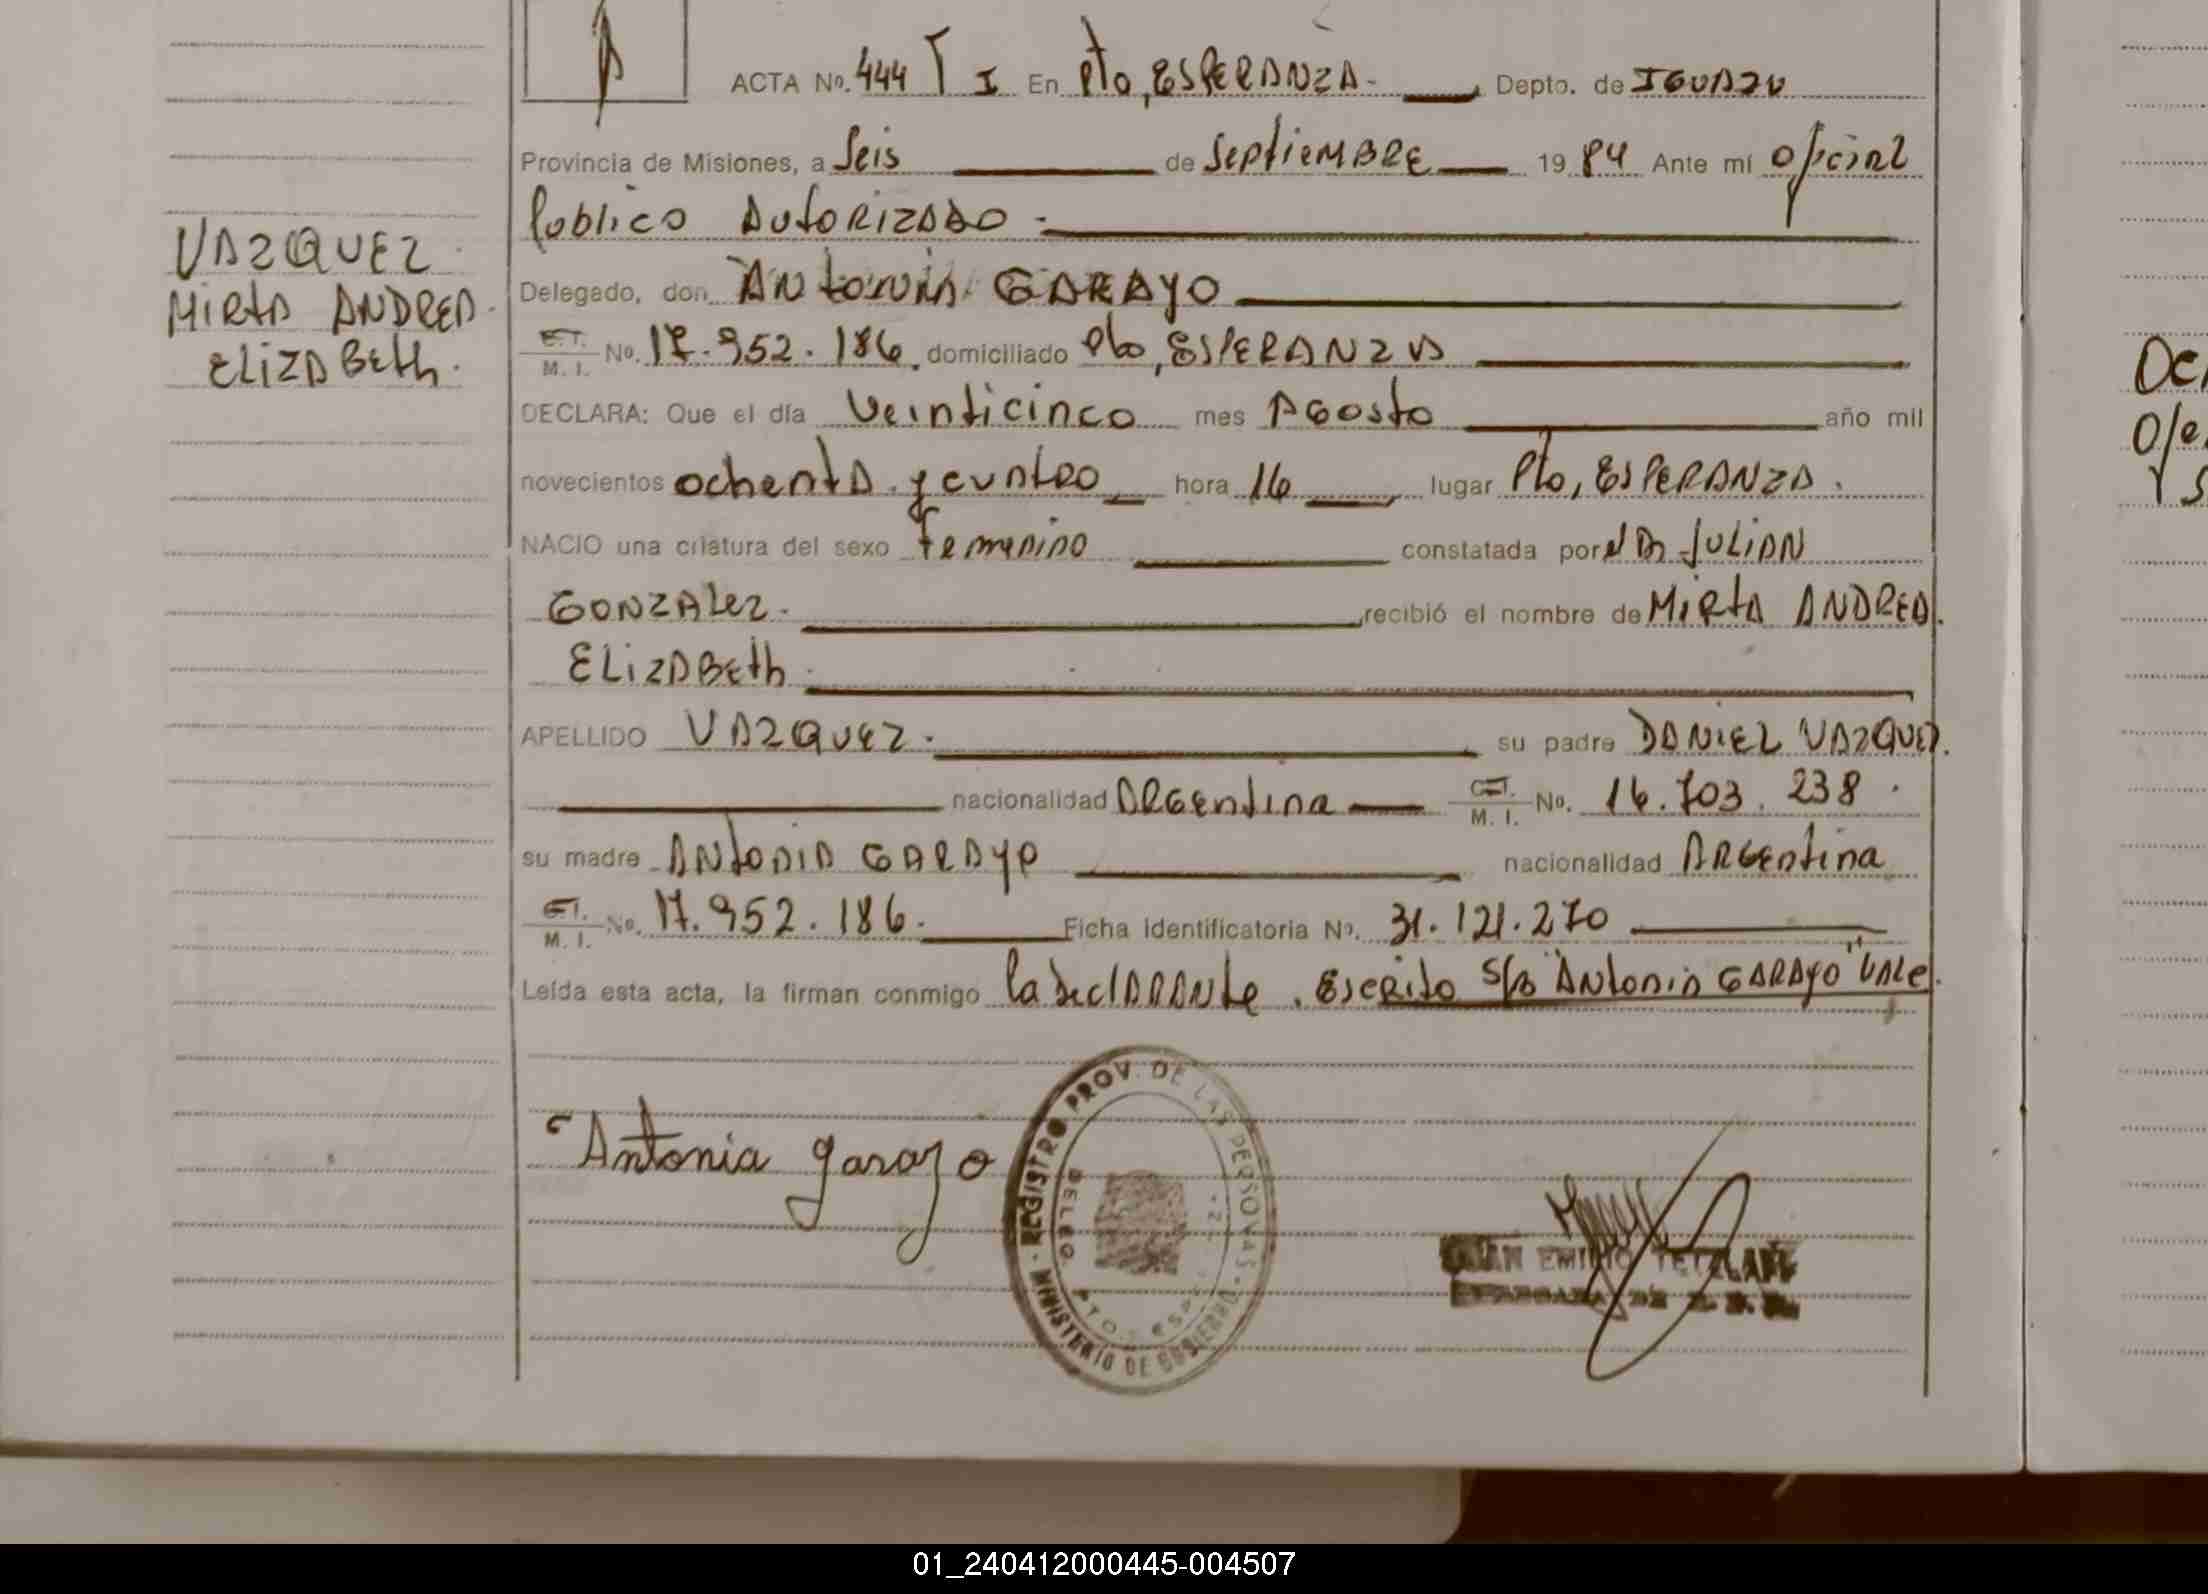 ACTA No. 444 T I En Pto, ESPERANZA - Depto. de IGUAZU
Provincia de Misiones, a Seis de Septiembre 1984 Ante mí Oficial
Publico Autorizado -
VAZQUEZ
MIRTA ANDREA
ELIZABEth
Delegado, don Antonia GARAYO
C.I. M. I. No. 17.952.186, domiciliado Pto, ESPERANZA
DECLARA: Que el día Veinticinco mes Agosto año mil
novecientos ochenta y cuatro hora 16 lugar Pto, ESPERANZA.
NACIO una criatura del sexo Femenino constatada por el Dr JULIAN
GONZALez. recibió el nombre de MIRTA ANDREA.
ELIZABEth
APELLIDO VAZQUEZ. su padre DANIEL VAZQUEZ.
nacionalidad ARGentina C.I. M. I. No. 16.703.238.
su madre ANtoniA GARAYO nacionalidad ARGentina
C.I. M. I. No. 17.952.186. Ficha identificatoria No. 31.121.270
Leída esta acta, la firman conmigo la declARANte. Escrito S/B "Antonia GARAYO" VALe.
Antonia garayo
REGISTRO PROV. DE LAS PERSONAS - MINISTERIO DE GOBIERNO
DELEG. PTO. ESP.
JUAN EMILIO
01_240412000445-004507